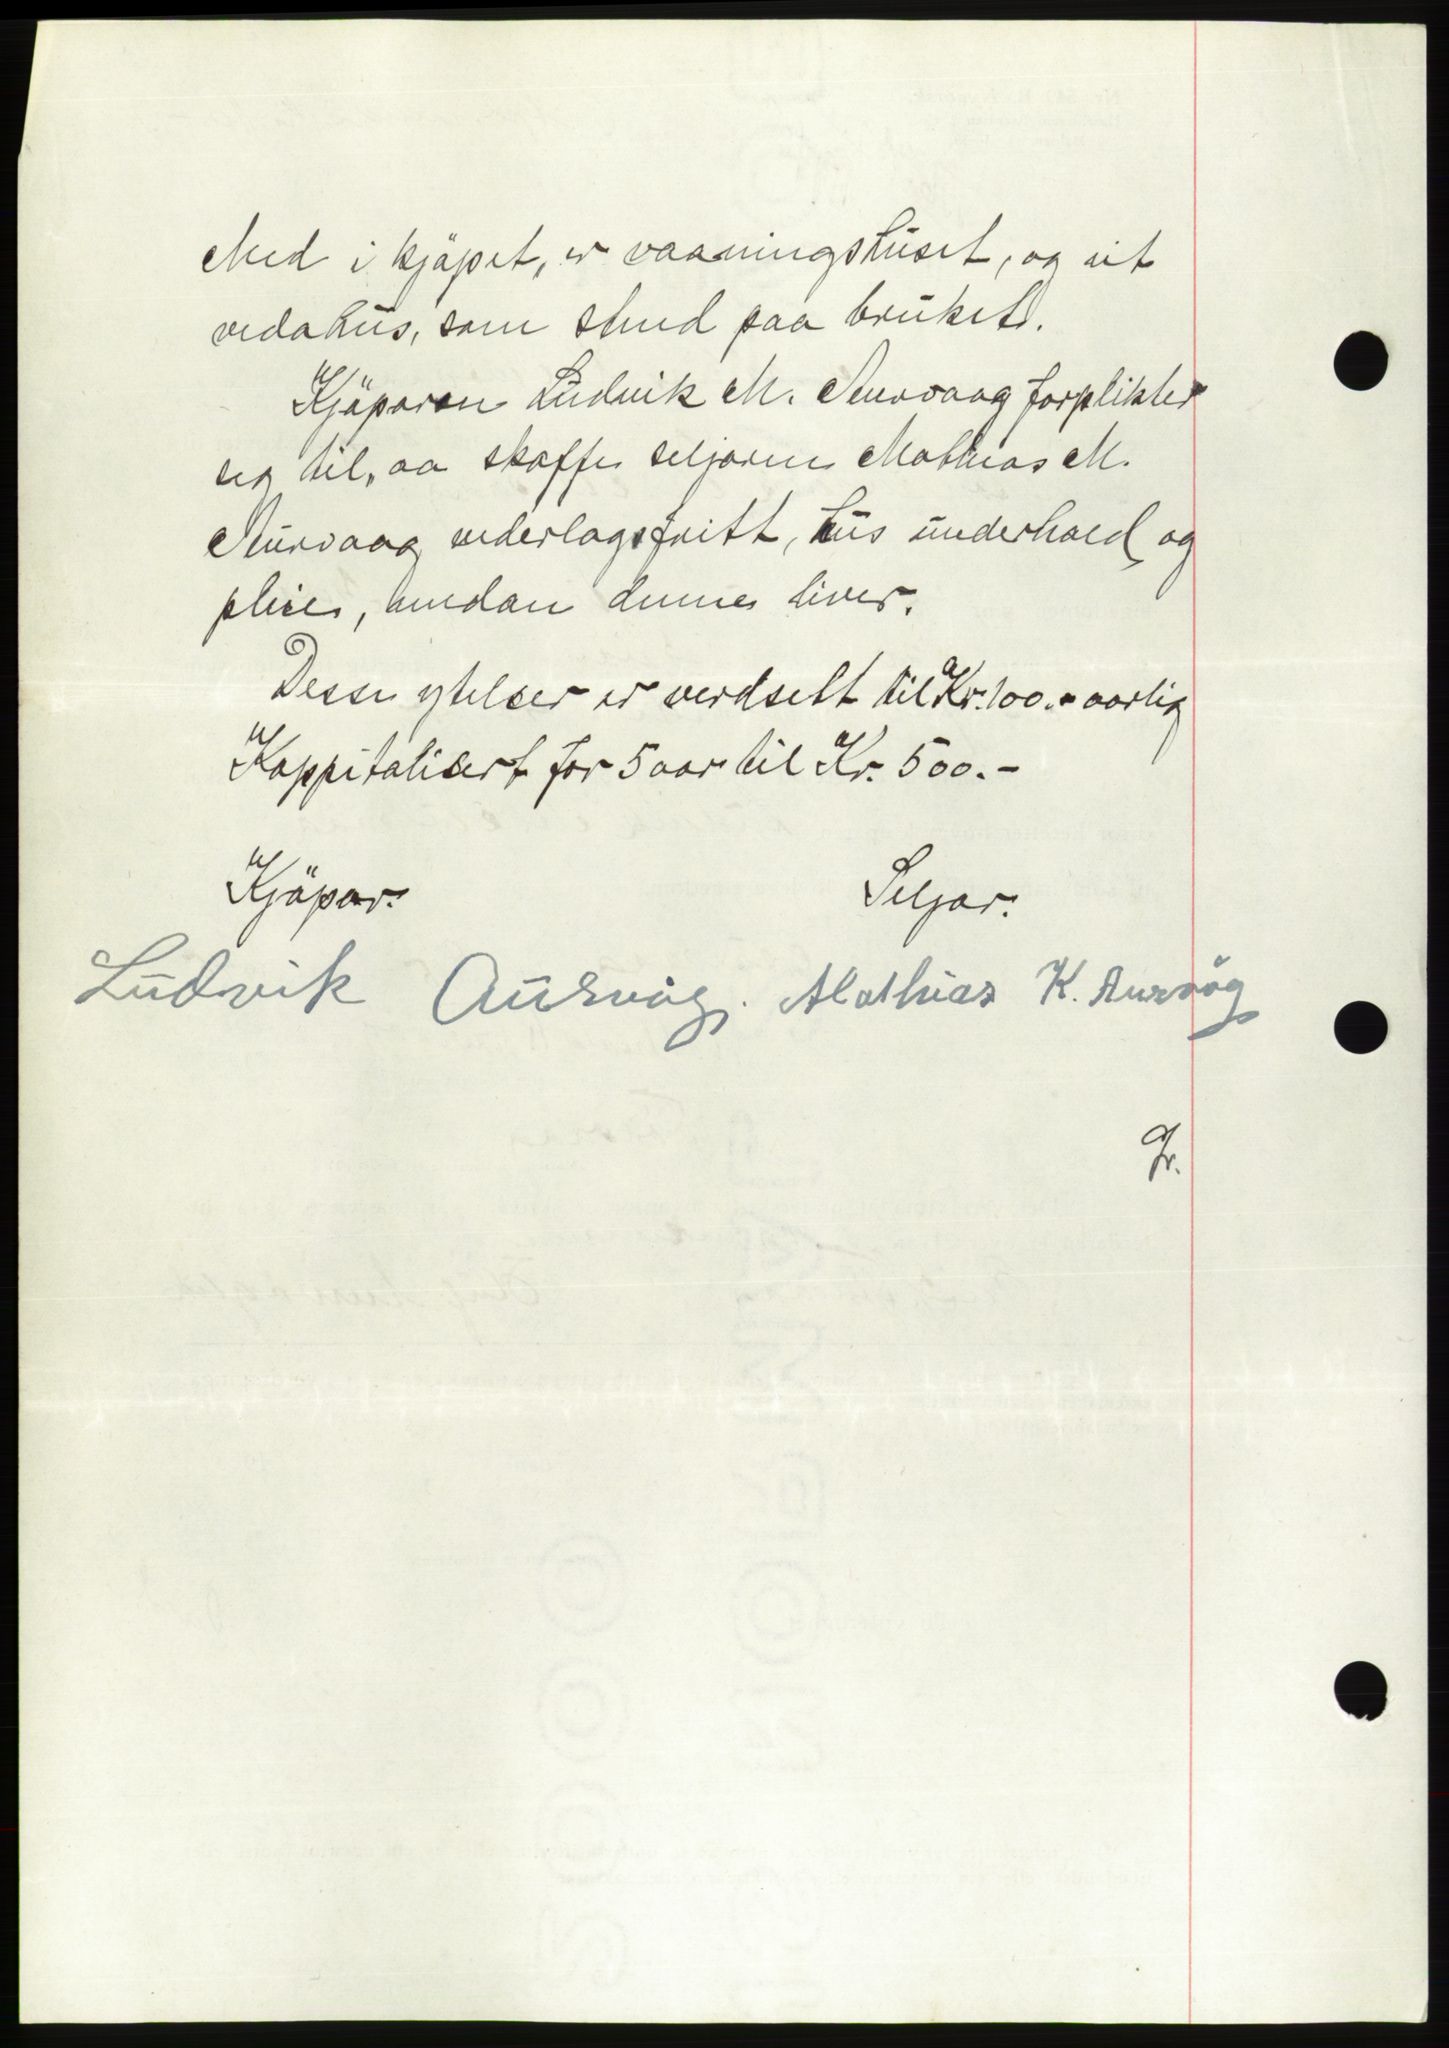 Med i kjöpet, er vaaningshuset, og eit
vedahus, som stend paa bruket.
Kjöparen Ludvik M. Aurvaag forplikter
seg til, aa skaffe seljaren Mathias M.
Aurvaag vederlagsfritt, hus underhald og
pleie, medan denne liver.
Desse ytelser er verdsett til Kr. 100.- aarlig
Kappitalisert for 5 aar til Kr. 500.-
Kjöpar. Seljar.
Ludvik Aurvåg. Mathias K. Aurvåg